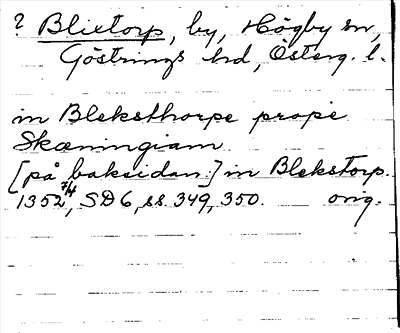 ? Blixtorp, by, Högby sn,
Göstrings hd, Österg. l.
in Bleksthorpe prope
Skæningiam
[på baksidan:] in Blekstorp.
1352 7/4, SD 6, ss. 349, 350. orig.